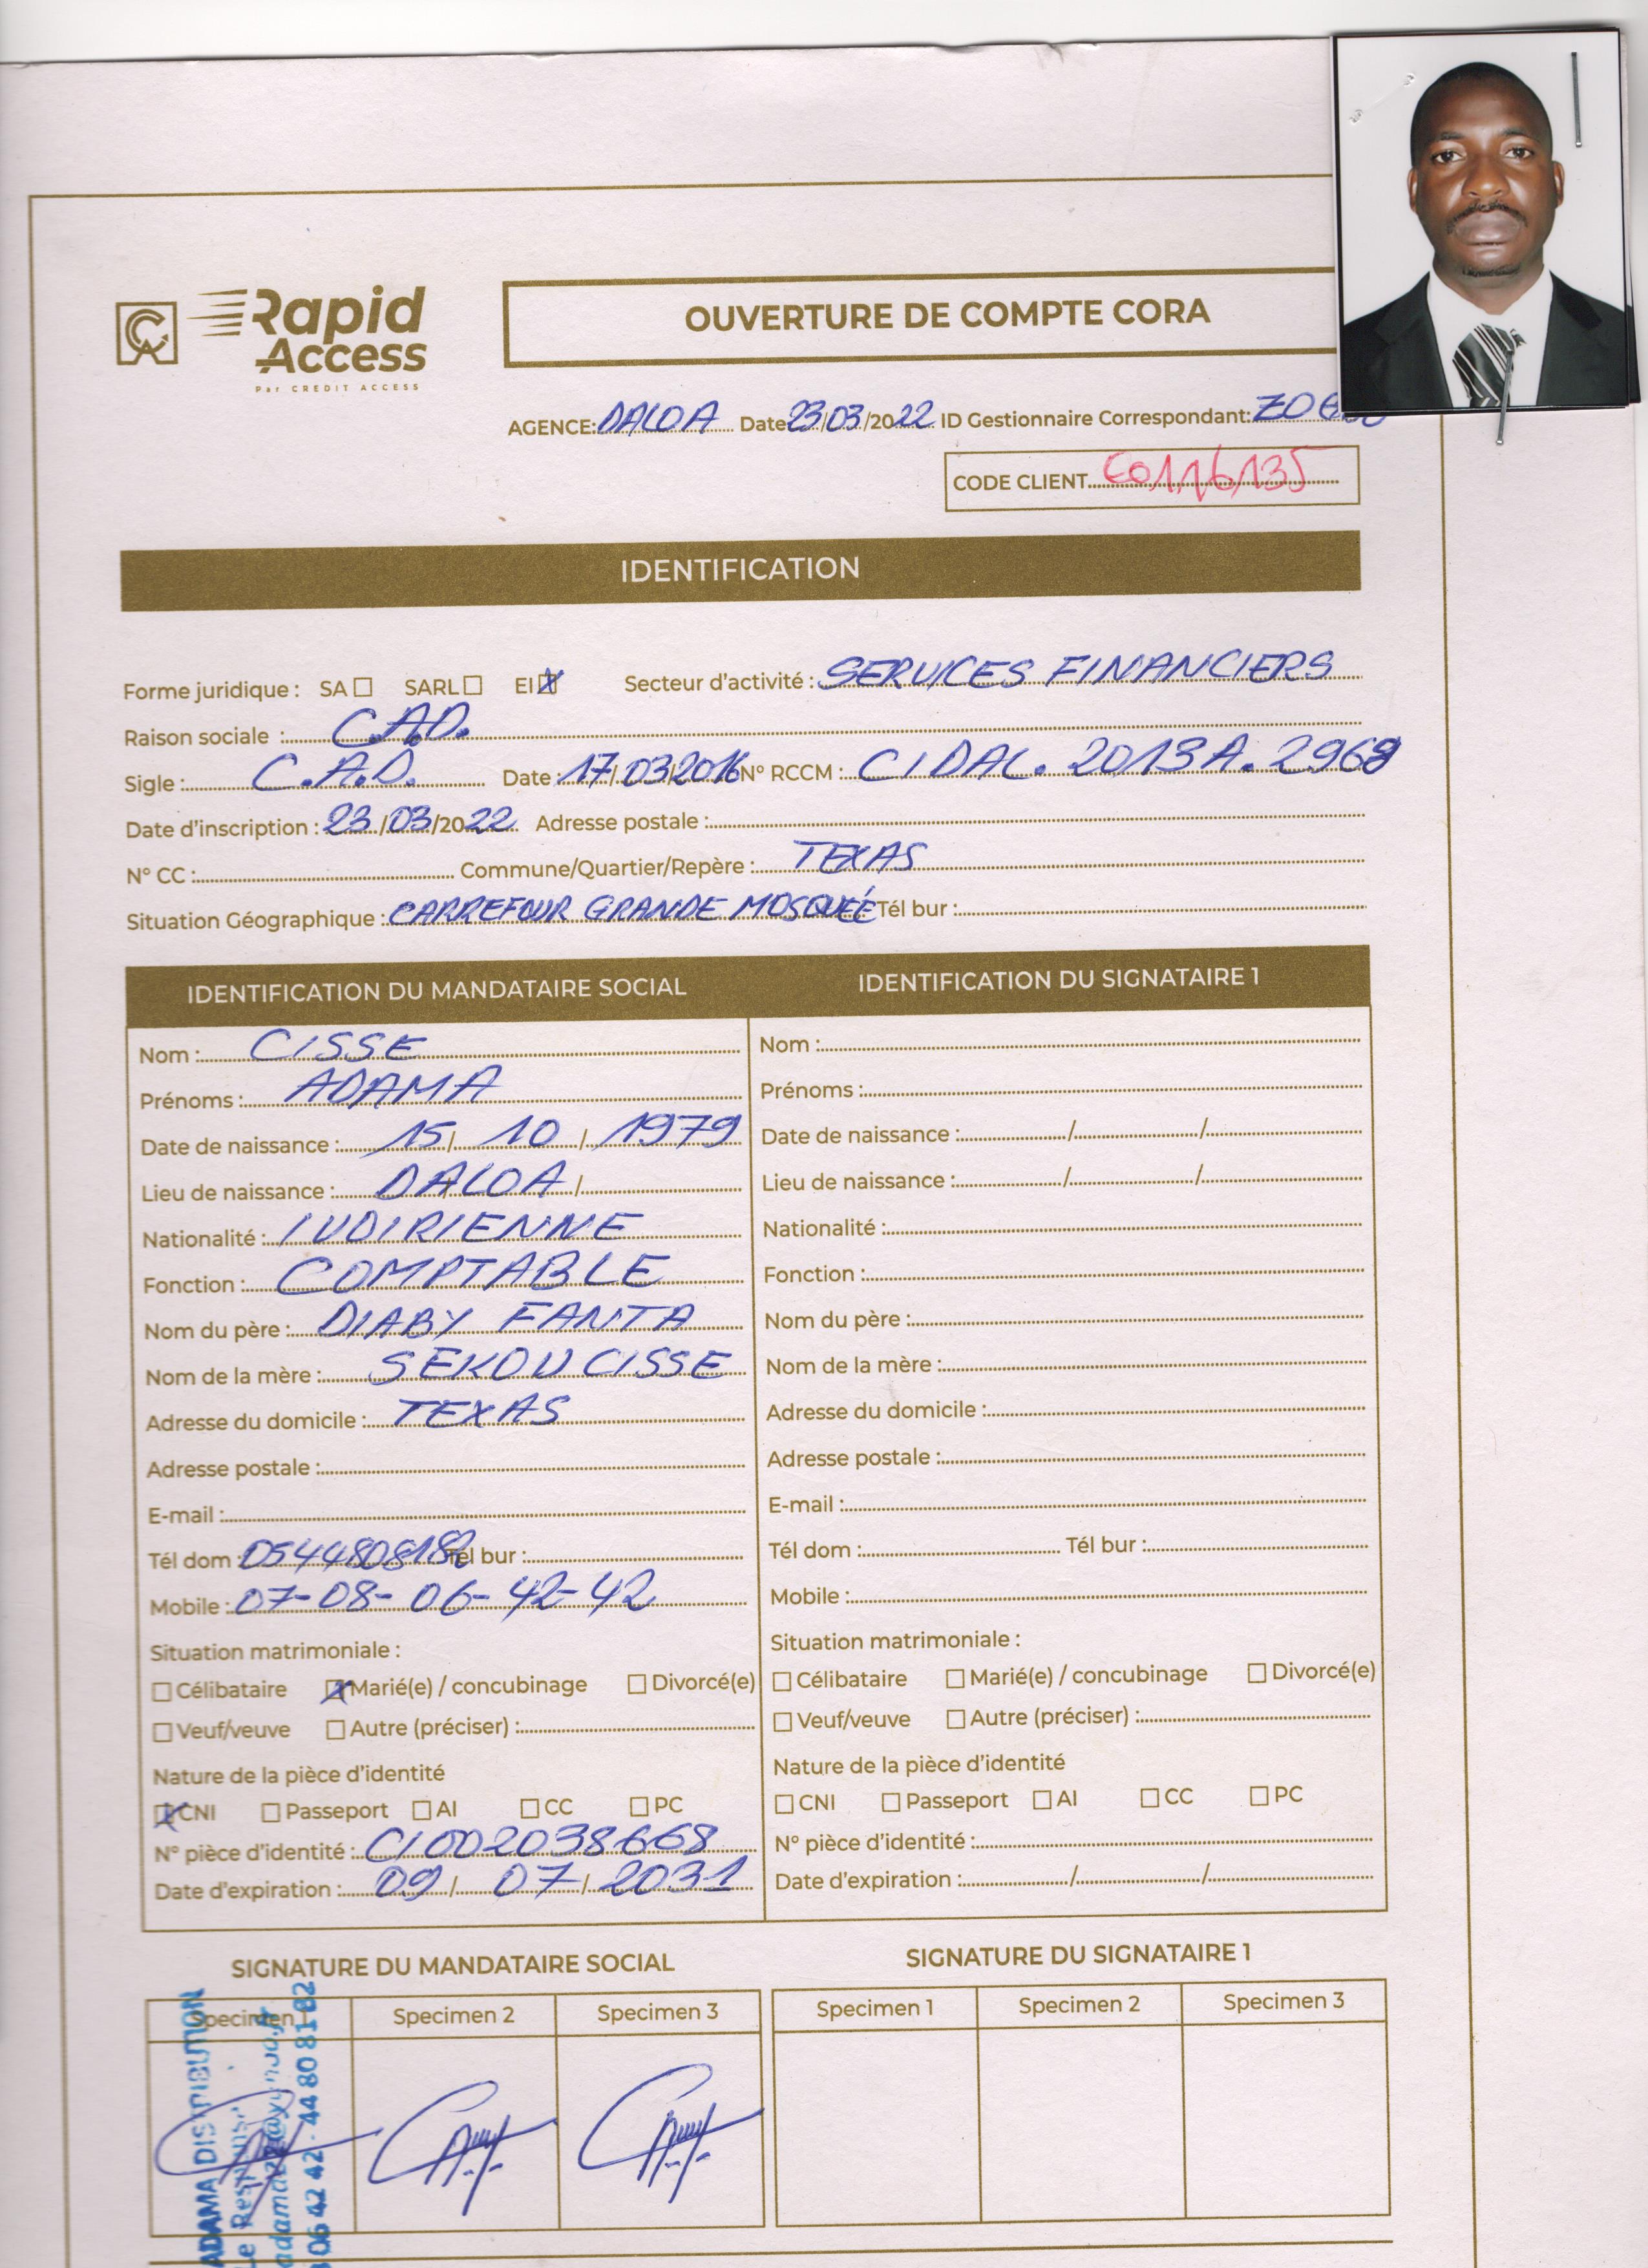 Rapid
Access
Par CREDIT ACCESS
OUVERTURE DE COMPTE CORA
AGENCE: DALOA Date 23/03/2022 ID Gestionnaire Correspondant:
CODE CLIENT E0116135
IDENTIFICATION
Forme juridique : SA SARL EI X Secteur d'activité : SERVICES FINANCIERS
Raison sociale : C.A.D.
Sigle : C.A.D. Date : 17/03/2016 N° RCCM : CIDAL.2013A.2969
Date d'inscription : 23/03/2022 Adresse postale :
N° CC : Commune/Quartier/Repère : TEXAS
Situation Géographique : CARREFOUR GRANDE MOSQUÉE Tél bur :
IDENTIFICATION DU MANDATAIRE SOCIAL
Nom : CISSE
Prénoms : ADAMA
Date de naissance : 15/ 10 / 1979
Lieu de naissance : DALOA /
Nationalité : IVOIRIENNE
Fonction : COMPTABLE
Nom du père : DIABY FANTA
Nom de la mère : SEKOU CISSE
Adresse du domicile : TEXAS
Adresse postale :
E-mail :
Tél dom : 0544808182 Tél bur :
Mobile : 07-08-06-42-42
Situation matrimoniale :
Célibataire X Marié(e) / concubinage Divorcé(e)
Veuf/veuve Autre (préciser) :
Nature de la pièce d'identité
X CNI Passeport AI CC PC
N° pièce d'identité : CI002038668
Date d'expiration : 09 / 07 / 2031
IDENTIFICATION DU SIGNATAIRE 1
Nom :
Prénoms :
Date de naissance : / /
Lieu de naissance : / /
Nationalité :
Fonction :
Nom du père :
Nom de la mère :
Adresse du domicile :
Adresse postale :
E-mail :
Tél dom : Tél bur :
Mobile :
Situation matrimoniale :
Célibataire Marié(e) / concubinage Divorcé(e)
Veuf/veuve Autre (préciser) :
Nature de la pièce d'identité
CNI Passeport AI CC PC
N° pièce d'identité :
Date d'expiration : / /
SIGNATURE DU MANDATAIRE SOCIAL
Specimen Specimen 2 Specimen 3
ADAMA DISTRIBUTION
Le
06 42 42 - 44 80 81 82
SIGNATURE DU SIGNATAIRE 1
Specimen 1 Specimen 2 Specimen 3